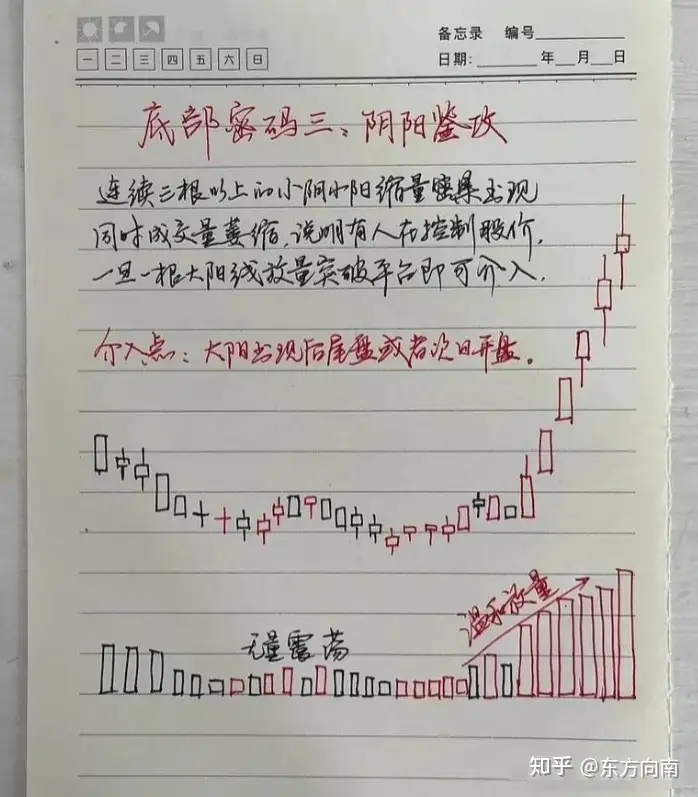 备忘录 编号
一 二 三 四 五 六 日 日期: 年 月 日
底部密码三：阴阳鉴攻
连续三根以上的小阴小阳缩量密集出现
同时成交量萎缩，说明有人在控制股价，
一旦一根大阳线放量突破平台即可介入．
介入点：大阳出现后尾盘或者次日开盘．
温和放量
无量震荡
知乎 @东方向南